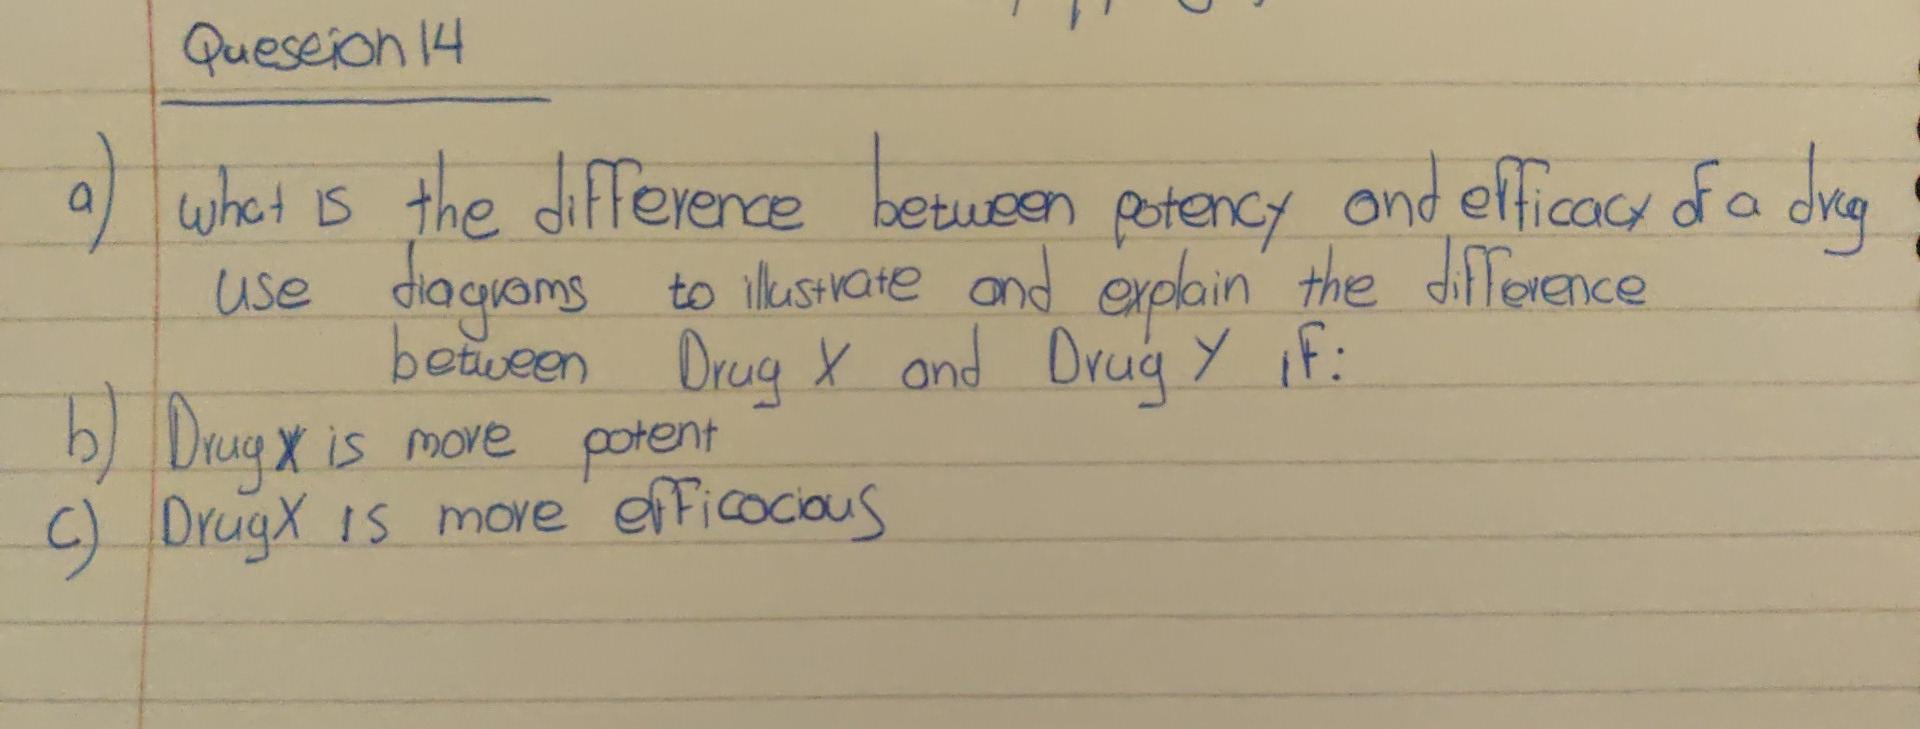 Queseion 14
a) what is the difference between potency and efficacy of a drug
use diagrams to illustrate and explain the difference
between Drug X and Drug Y if:
b) Drug X is more potent
c) Drug X is more efficocious